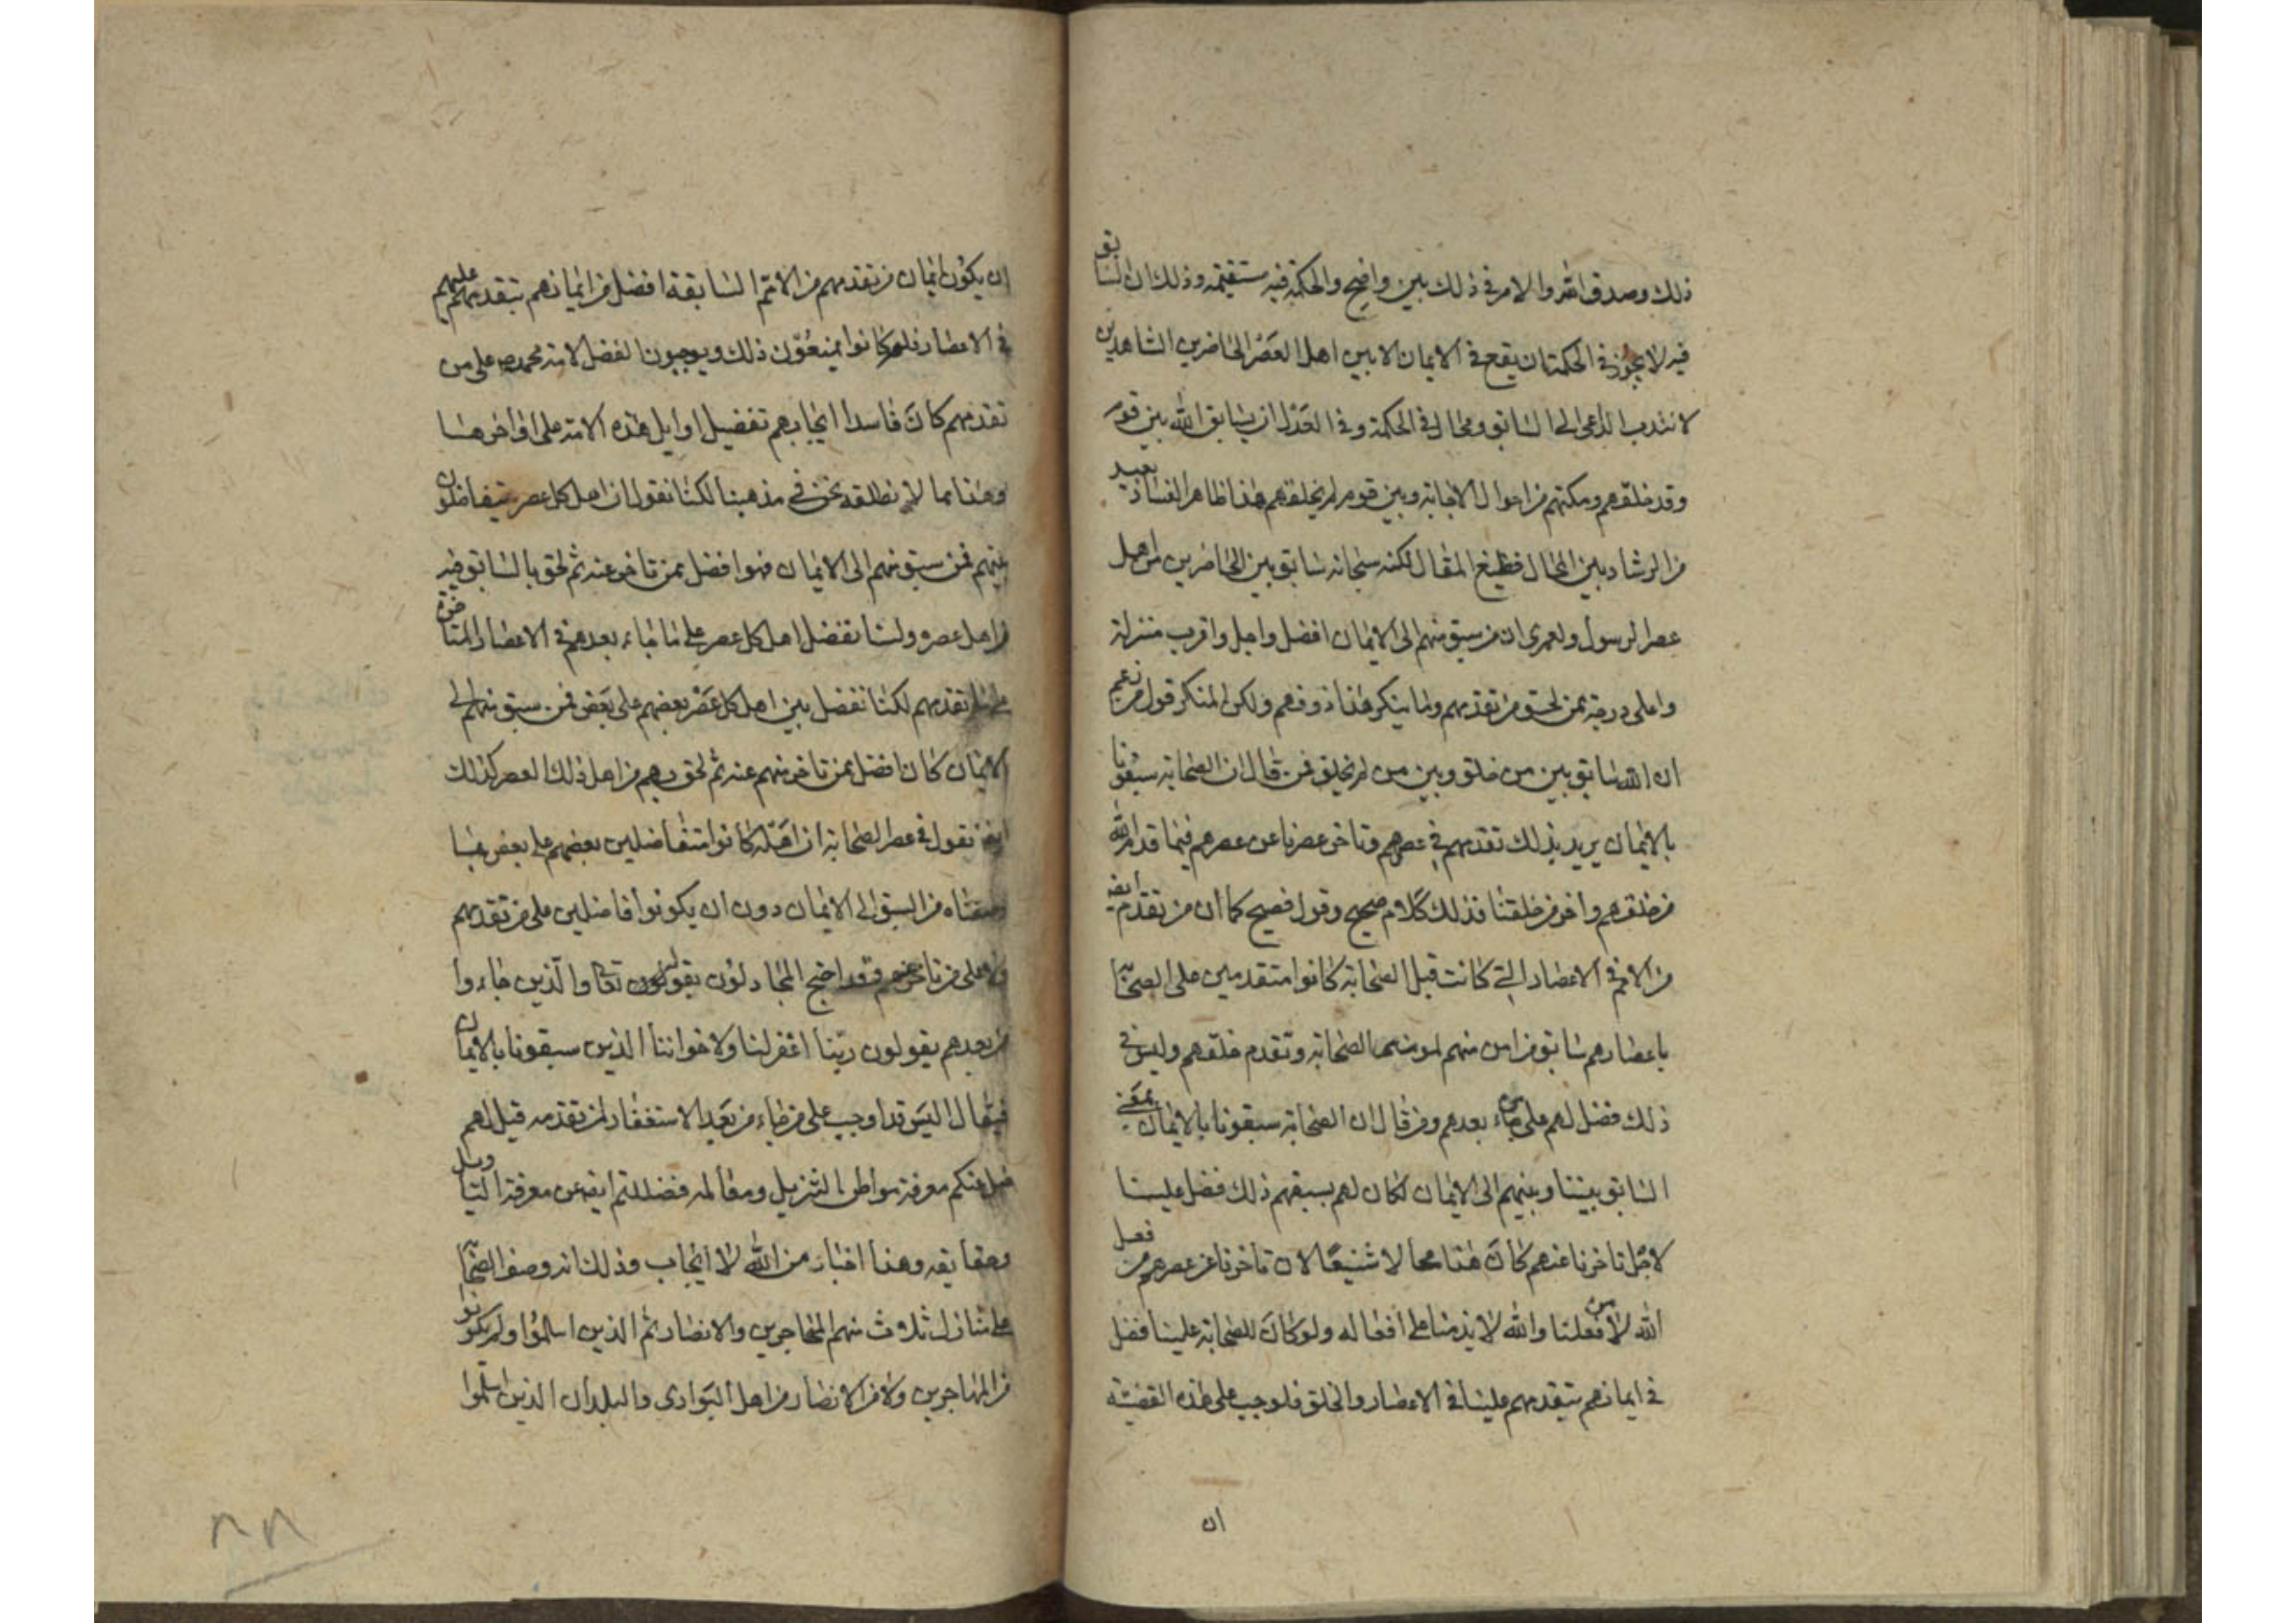 ذلك وصدق الله والامر في ذلك بين واضح والحكمة فيه مستقيمه وذلك ان السابق
فيه لا يجوز في الحكمة ان يقع في الايمان الا بين اهل العصر الحاضرين الشاهدين
لا نتدب الداعى الى السابق ومحال في الحكمة وفي العدل ان يسابق الله بين قوم
وقد خلقهم ومكنهم من احوال الاجابة وبين قوم لم يخلقهم هذا ظاهر الفساد بعيد
من الرشاد بين المحال فظيع المقال لكنه سبحانه سابق بين الحاضرين من اهل
عصر الرسول ولعمرى ان من سبق منهم الى الايمان افضل واجل واقرب منزلة
واعلى درجة ممن لحق من تقدمهم وما ينكر هذا ذو فهم ولكن المنكر قول من زعم
ان الله سابق بين من خلق وبين من لم يخلق فمن قال ان الصحابة سبقونا
بالايمان يريد بذلك تقدمهم في عصرهم وتاخر عصرنا عن عصرهم فيما قدم الله
من خلقهم واخر من خلقنا فذلك كلام صحيح وقول فصيح كما ان من تقدم ايضا
من الامم في الاعصار التي كانت قبل الصحابة كانوا متقدمين على الصحابة
باعصارهم سابق من امن منهم لمومنى الصحابة وتقدم خلقهم وليس في
ذلك فضل لهم على من جاء بعدهم ومن قال ان الصحابة سبقونا بالايمان بمعنى
السابق بيننا وبينهم الى الايمان لكان لهم بسبقهم ذلك فضل علينا
لاجل تاخرنا عنهم كان هذا محالا شنيعا لان تاخرنا عن عصرهم من فعل
الله لا من فعلنا والله لا يذمنا على افعاله ولو كان للصحابة علينا فضل
في ايمانهم بتقدمهم علينا في الاعصار والخلق فلوجب على هذه القضية
ان
ان يكون ايمان من تقدمهم من الامم السابقة افضل من ايمانهم بتقدمهم عليهم
في الاعصار فلو كانوا يمنعون ذلك ويوجبون الفضل لامة محمد ص على من
تقدمهم كان فاسدا ايجابهم تفضيل اوايل هذه الامة على اواخرها
وهذا مما لا نطلقه نحن في مذهبنا لكنا نقول ان اهل كل عصر يتفاضلون
بينهم فمن سبق منهم الى الايمان فهو افضل ممن تاخر عنه ثم لحق بالسابق فيه
من اهل عصره ولسنا نفضل اهل كل عصر على ما جاء بعدهم في الاعصار المتاخرة
على تقدمهم لكنا نفضل بين اهل كل عصر بعضهم على بعض فمن سبق منهم الى
الايمان كان افضل ممن تاخر منهم عنه ثم لحق بهم من اهل ذلك العصر كذلك
ايضا نقول في عصر الصحابة ان اهله كانوا متفاضلين بعضهم على بعض بما
وصفناه من السبق الى الايمان دون ان يكونوا فاضلين على من تقدمهم
ولا على من تاخر عنهم وقد احتج المجادلون بقول الله تعا والذين جاءوا
من بعدهم يقولون ربنا اغفر لنا ولاخواننا الذين سبقونا بالايمان
فيقال اليس قد اوجب على من جاء من بعد الاستغفار لمن تقدمه قيل لهم
ضل عنكم معرفة مواطن التنزيل ومعالمه فضللتم ايضا عن معرفة التاويل
وحقايقه وهذا اخبار من الله لا ايجاب وذلك انه وصف الصحابة
على منازل ثلاث منهم المهاجرين والانصار ثم الذين اسلموا ولم يكونوا
من المهاجرين ولا من الانصار من اهل البوادى والبلدان الذين اسلموا
٢٨